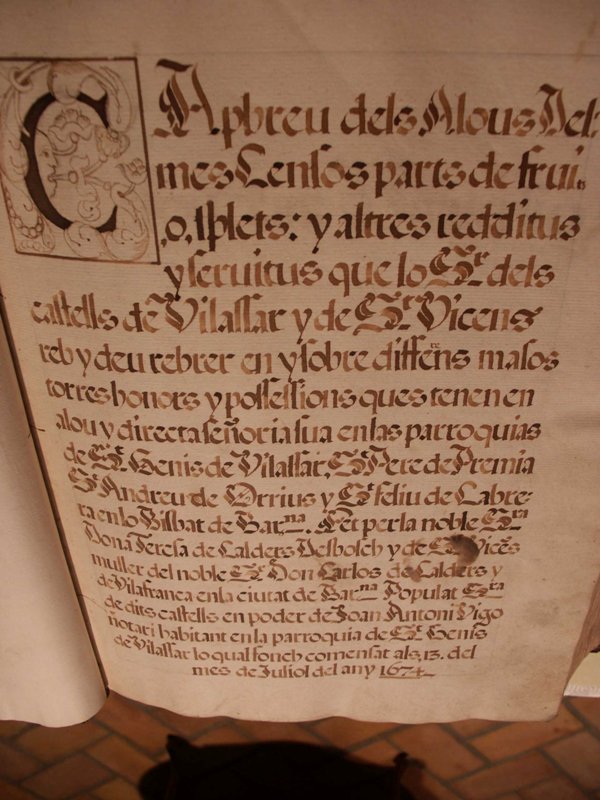 CApbreu dels Alous Del-
mes Censos parts de frui.
,o, ısplets: y altres redditus
y seruitus que lo Sr. dels
castells de Vilassar y de St. Vicens
reb y deu rebrer en y sobre differens masos
torres honors y possessions ques tenen en
alou y directa señoria sua en las parroquias
de St. Genis de Vilassar, St. Pere de Premia
St. Andreu de Orrius y St. feliu de Cabre-
ra en lo Bisbat de Barna. Fet per la noble Sra
Dona Teresa de Calders Desbosch y de St. Vicēs
muller del noble Sr. Don Carlos de Calders y
de Vilafranca en la ciutat de Barna Populat Sra
de dits castells en poder de Joan Antoni Vigo
notari habitant en la parroquia de St. Genis
de Vilassar lo qual fonch comensat als, 13. del
mes de Juliol del any 1674